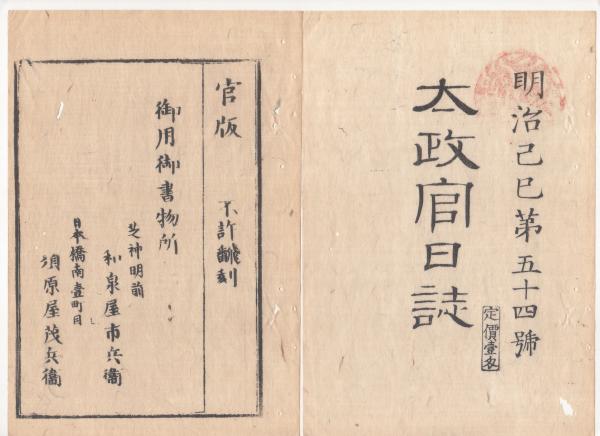 明治己巳第五十四號
太政官日誌
定價壹匁
官版 不許翻刻
御用御書物所
芝神明前
和泉屋市兵衞
日本橋南壹町目
須原屋茂兵衞